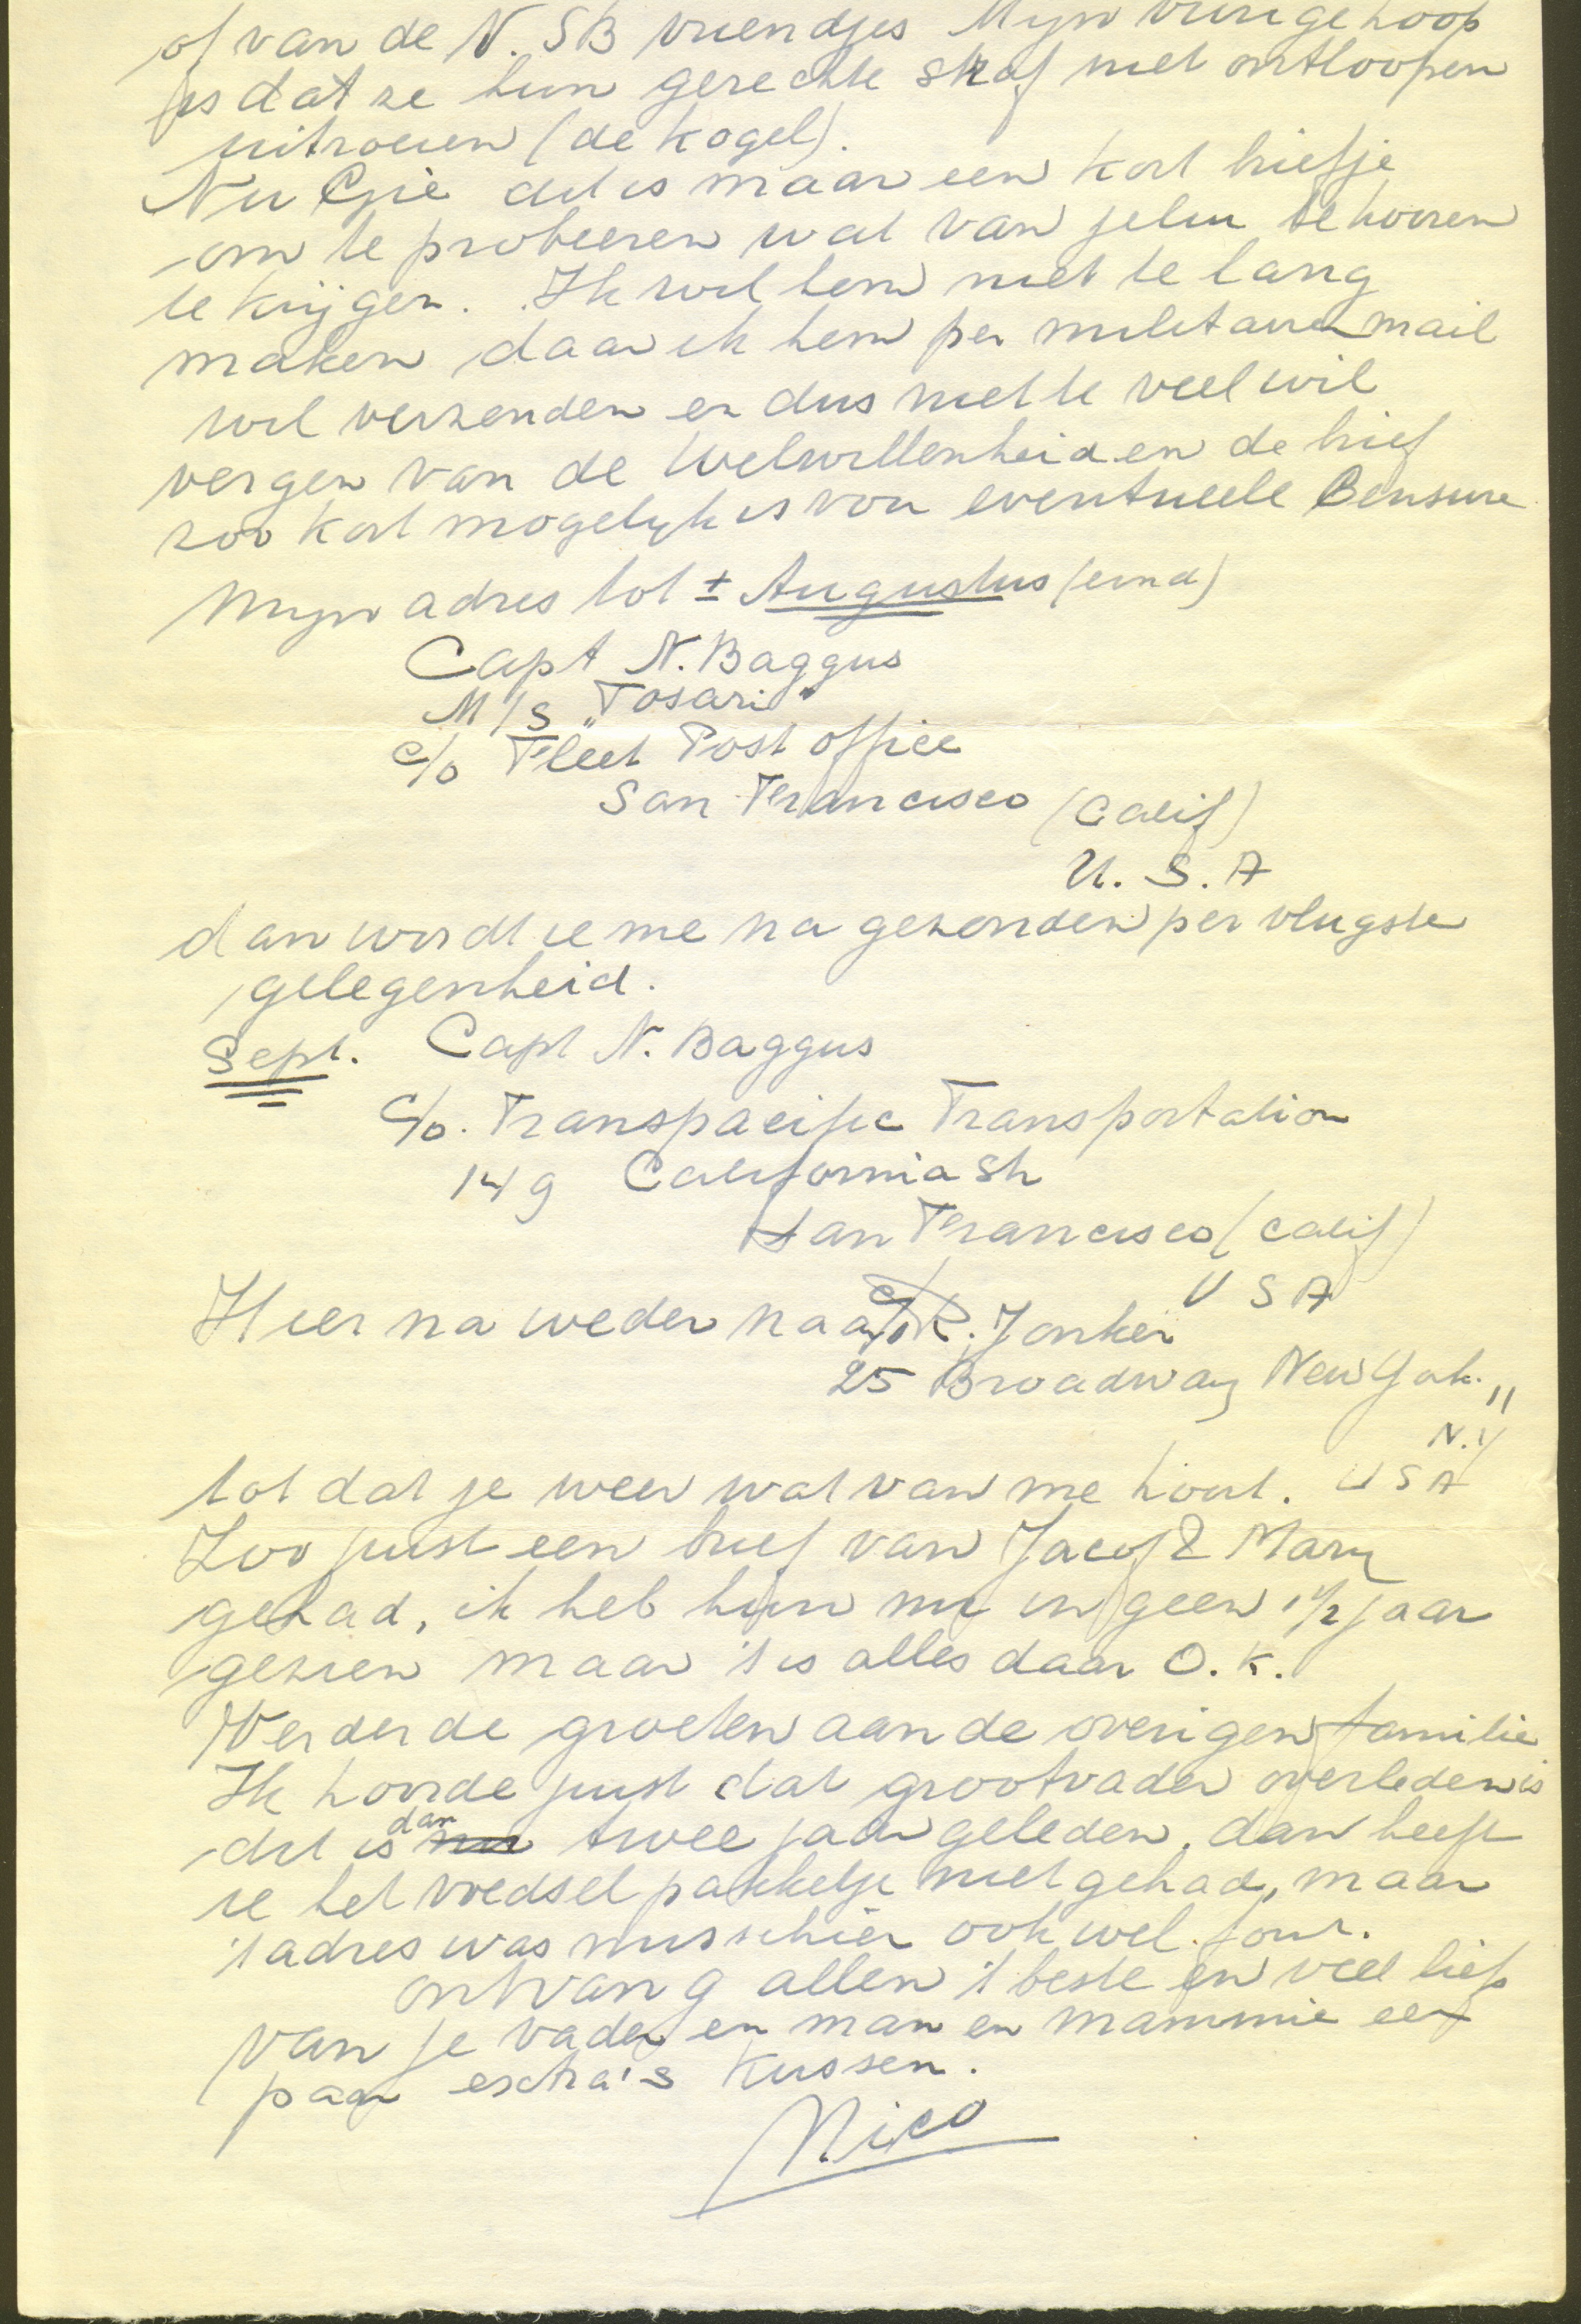 of van de N.SB vriendjes Mijn vurige hoop
is dat ze hun gerechte straf niet ontloopen
uitroeien (de kogel).
Nu Gré dit is maar een kort briefje
om te probeeren wat van jelui te hooren
te krijgen. Ik wil hem niet te lang
maken daar ik hem per militaire mail
wil verzenden en dus niet te veel wil
vergen van de Welwillenheid en de brief
zoo kort mogelijk is voor eventueele Censure
Mijn adres tot ± Augustus (eind)
Capt N. Baggus
M/S "Tosari"
c/o Fleet Post office
San Francisco (Calif)
U. S. A
dan wordt ie me na gezonden per vlugste
gelegenheid.
Sept. Capt N. Baggus
c/o. Transpacific Transportation
149 California Str
San Francisco (Calif)
U S A
Hier na weder naar R. Jonker
25 Broadway New York. 11
N.Y
tot dat je weer wat van me hoort. U S A
Zoo juist een brief van Jacof & Mary
gehad, ik heb hun nu in geen 1 1/2 jaar
gezien maar 't is alles daar O.K.
Verder de groeten aan de overigen familie
Ik hoorde juist dat grootvader overleden is
dit is dan twee jaar geleden, dan heeft
ie het voedsel pakketje niet gehad, maar
't adres was misschien ook wel fout.
ontvang allen 't beste en veel liefs
van je vader en man en mammie een
paar extra's kussen.
Nico